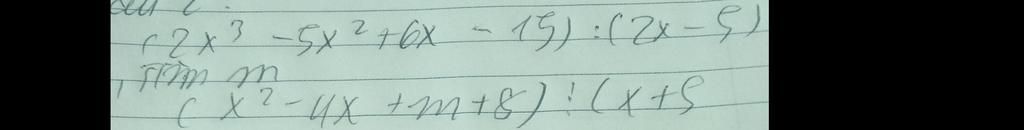 (2x³ - 5x² + 6x - 15) : (2x - 5)
, Tìm m
(x² - 4x + m + 8) : (x + 5